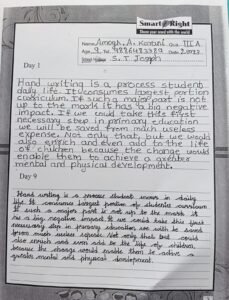 Smart Right
Name: Amogh. A. Kardni Std: III A
Age: 9 Tel: 9886483389 Date:
S. T. Joseph
Day 1
Hand writing is a process student
daily life. It consumes largest portion
curriculum. If such a major part is not
up to the mark it has a big negative
impact. If we could take this first
necessary step in primary education
we will be saved from much useless
expense. Not only that, but we would
also enrich and even add to the life
of children because the change would
enable them to achieve a greater
mental and physical development.
Day 9
Hand writing is a process student in daily
life. It consumes largest portion of students curriculum
If such a major part is not up to the mark it
has a big negative impact. If we could take this first
necessary step in primary education we will be saved
from much useless expense. Not only that but we could
also enrich and even add to the life of children,
because the change would enable them to achieve a
greater mental and physical development.